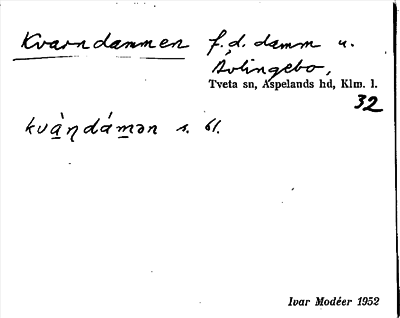 Kvarndammen f.d. damm u.
Åvlingebo,
Tveta sn, Aspelands hd, Klm. l.
32
kvàṇdámən s. 61.
Ivar Modéer 1952